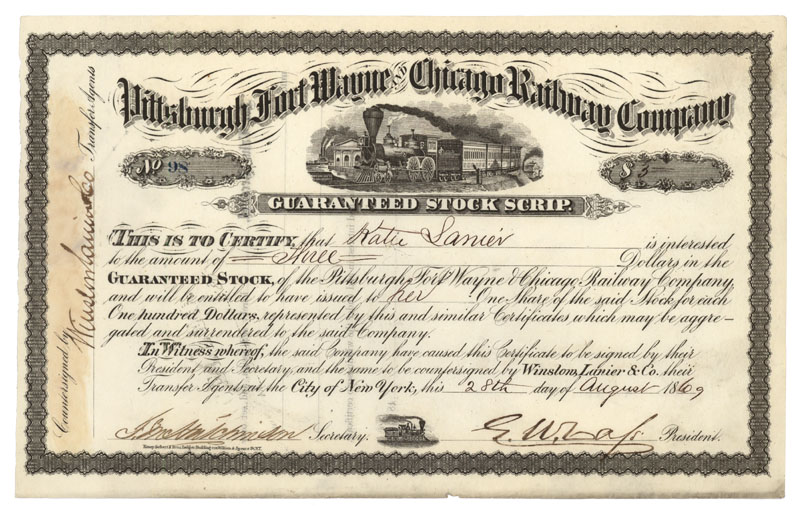 Pittsburgh Fort Wayne and Chicago Railway Company
No 98
$ 3
GUARANTEED STOCK SCRIP.
THIS IS TO CERTIFY, that Katie Lanier is interested
to the amount of Three Dollars in the
GUARANTEED STOCK, of the Pittsburgh, Fort Wayne & Chicago Railway Company,
and will be entitled to have issued to her One Share of the said Stock for each
One hundred Dollars, represented by this and similar Certificates which may be aggre-
gated and surrendered to the said Company.
In Witness whereof, the said Company have caused this Certificate to be signed by their
President and Secretary, and the same to be countersigned by Winslow, Lanier & Co. their
Transfer Agents, at the City of New York, this 28th day of August 1869
Secretary.
President.
Countersigned by Winslow Lanier & Co Transfer Agents